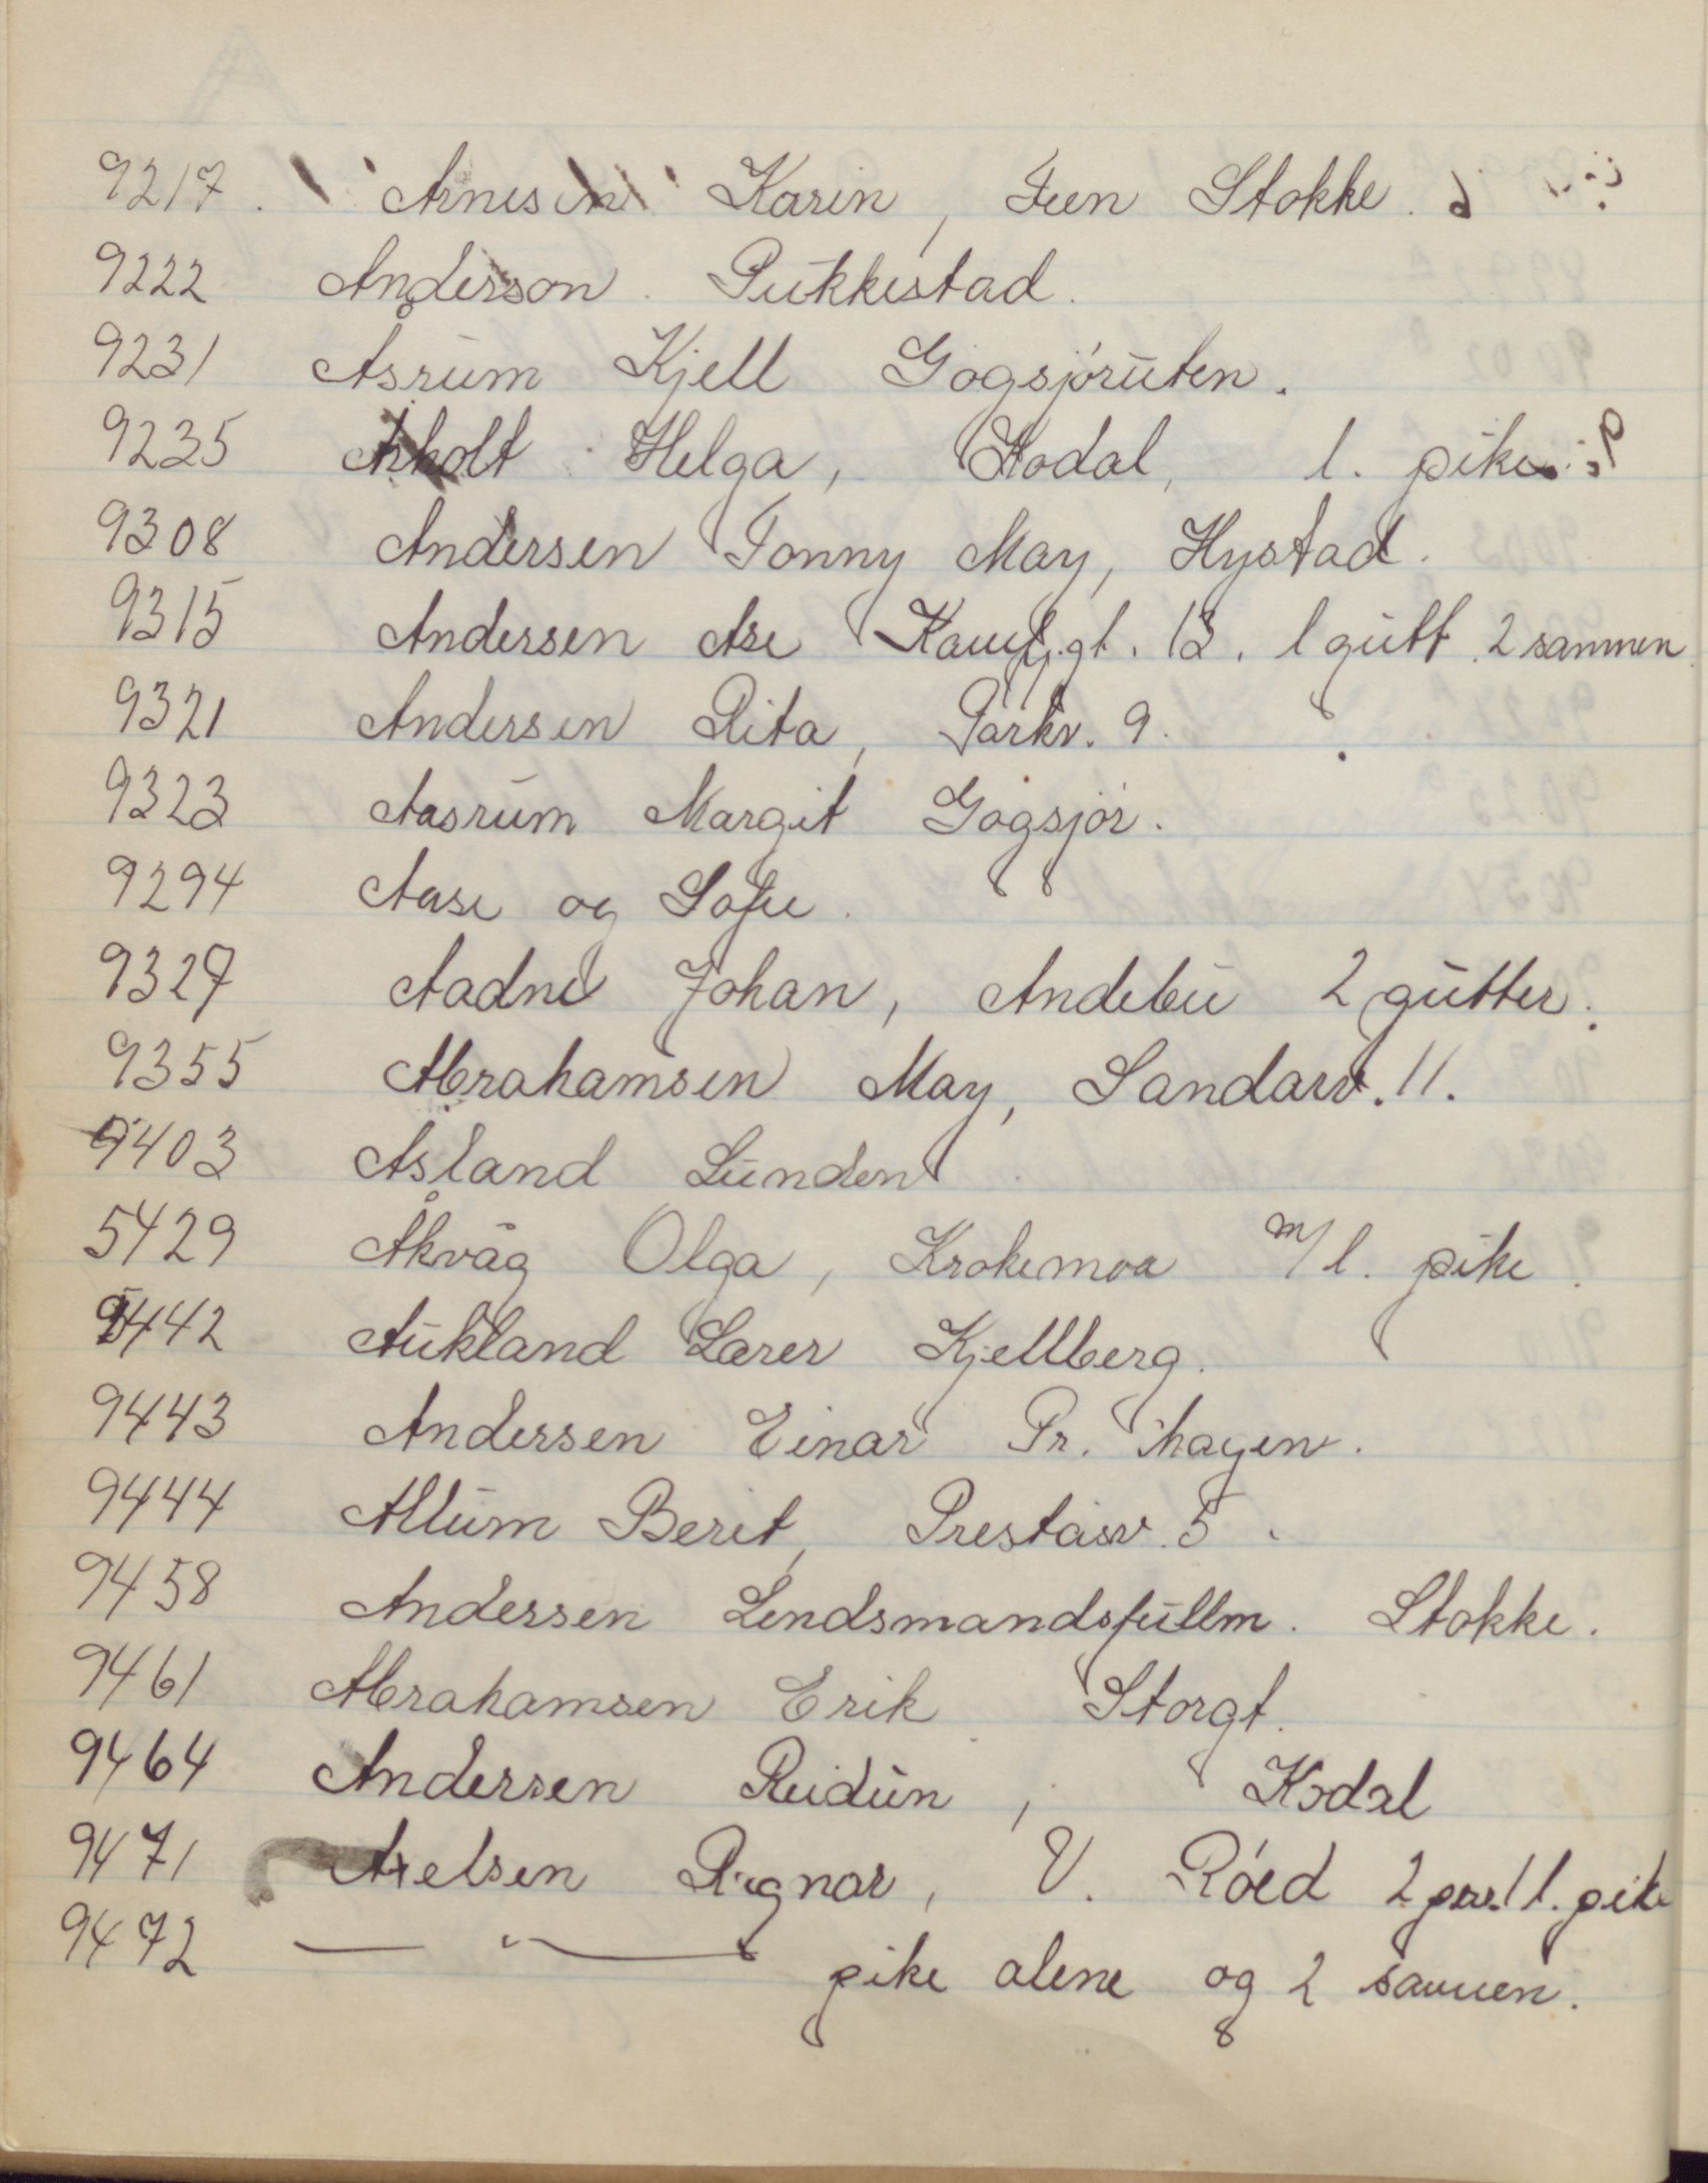 9217. Arnesen Karin, Fen Stokke.
9222 Anderson. Pukkestad.
9231 Åsrum Kjell Gogsjøruten.
9235 Arholt Helga, Kodal, 1. pike
9308 Andersen Tonny May, Hystad.
9315 Andersen Åse Kamfj.gt. 13. 1 gutt 2 sammen
9321 Andersen Rita, Parkv. 9.
9323 Aasrum Margit Gogsjør.
9294 Aase og Sofie.
9327 Aadne Johan, Andebu 2 gutter.
9355 Abrahamsen May, Sandarv. 11.
9403 Åsland Lunden
5429 Åkvåg Olga, Krokemoa m/ l. pike.
9442 Aukland Lærer Kjellberg.
9443 Andersen Einar Pr. hagen.
9444 Allum Berit, Preståsv. 5.
9458 Andersen Lendsmandsfullm. Stokke.
9461 Abrahamsen Erik Storgt.
9464 Andersen Reidun, Kodal
9471 Axelsen Ragnar, V. Røed 2 pers. 1 l. pike
9472 — " — pike alene og 2 sammen.